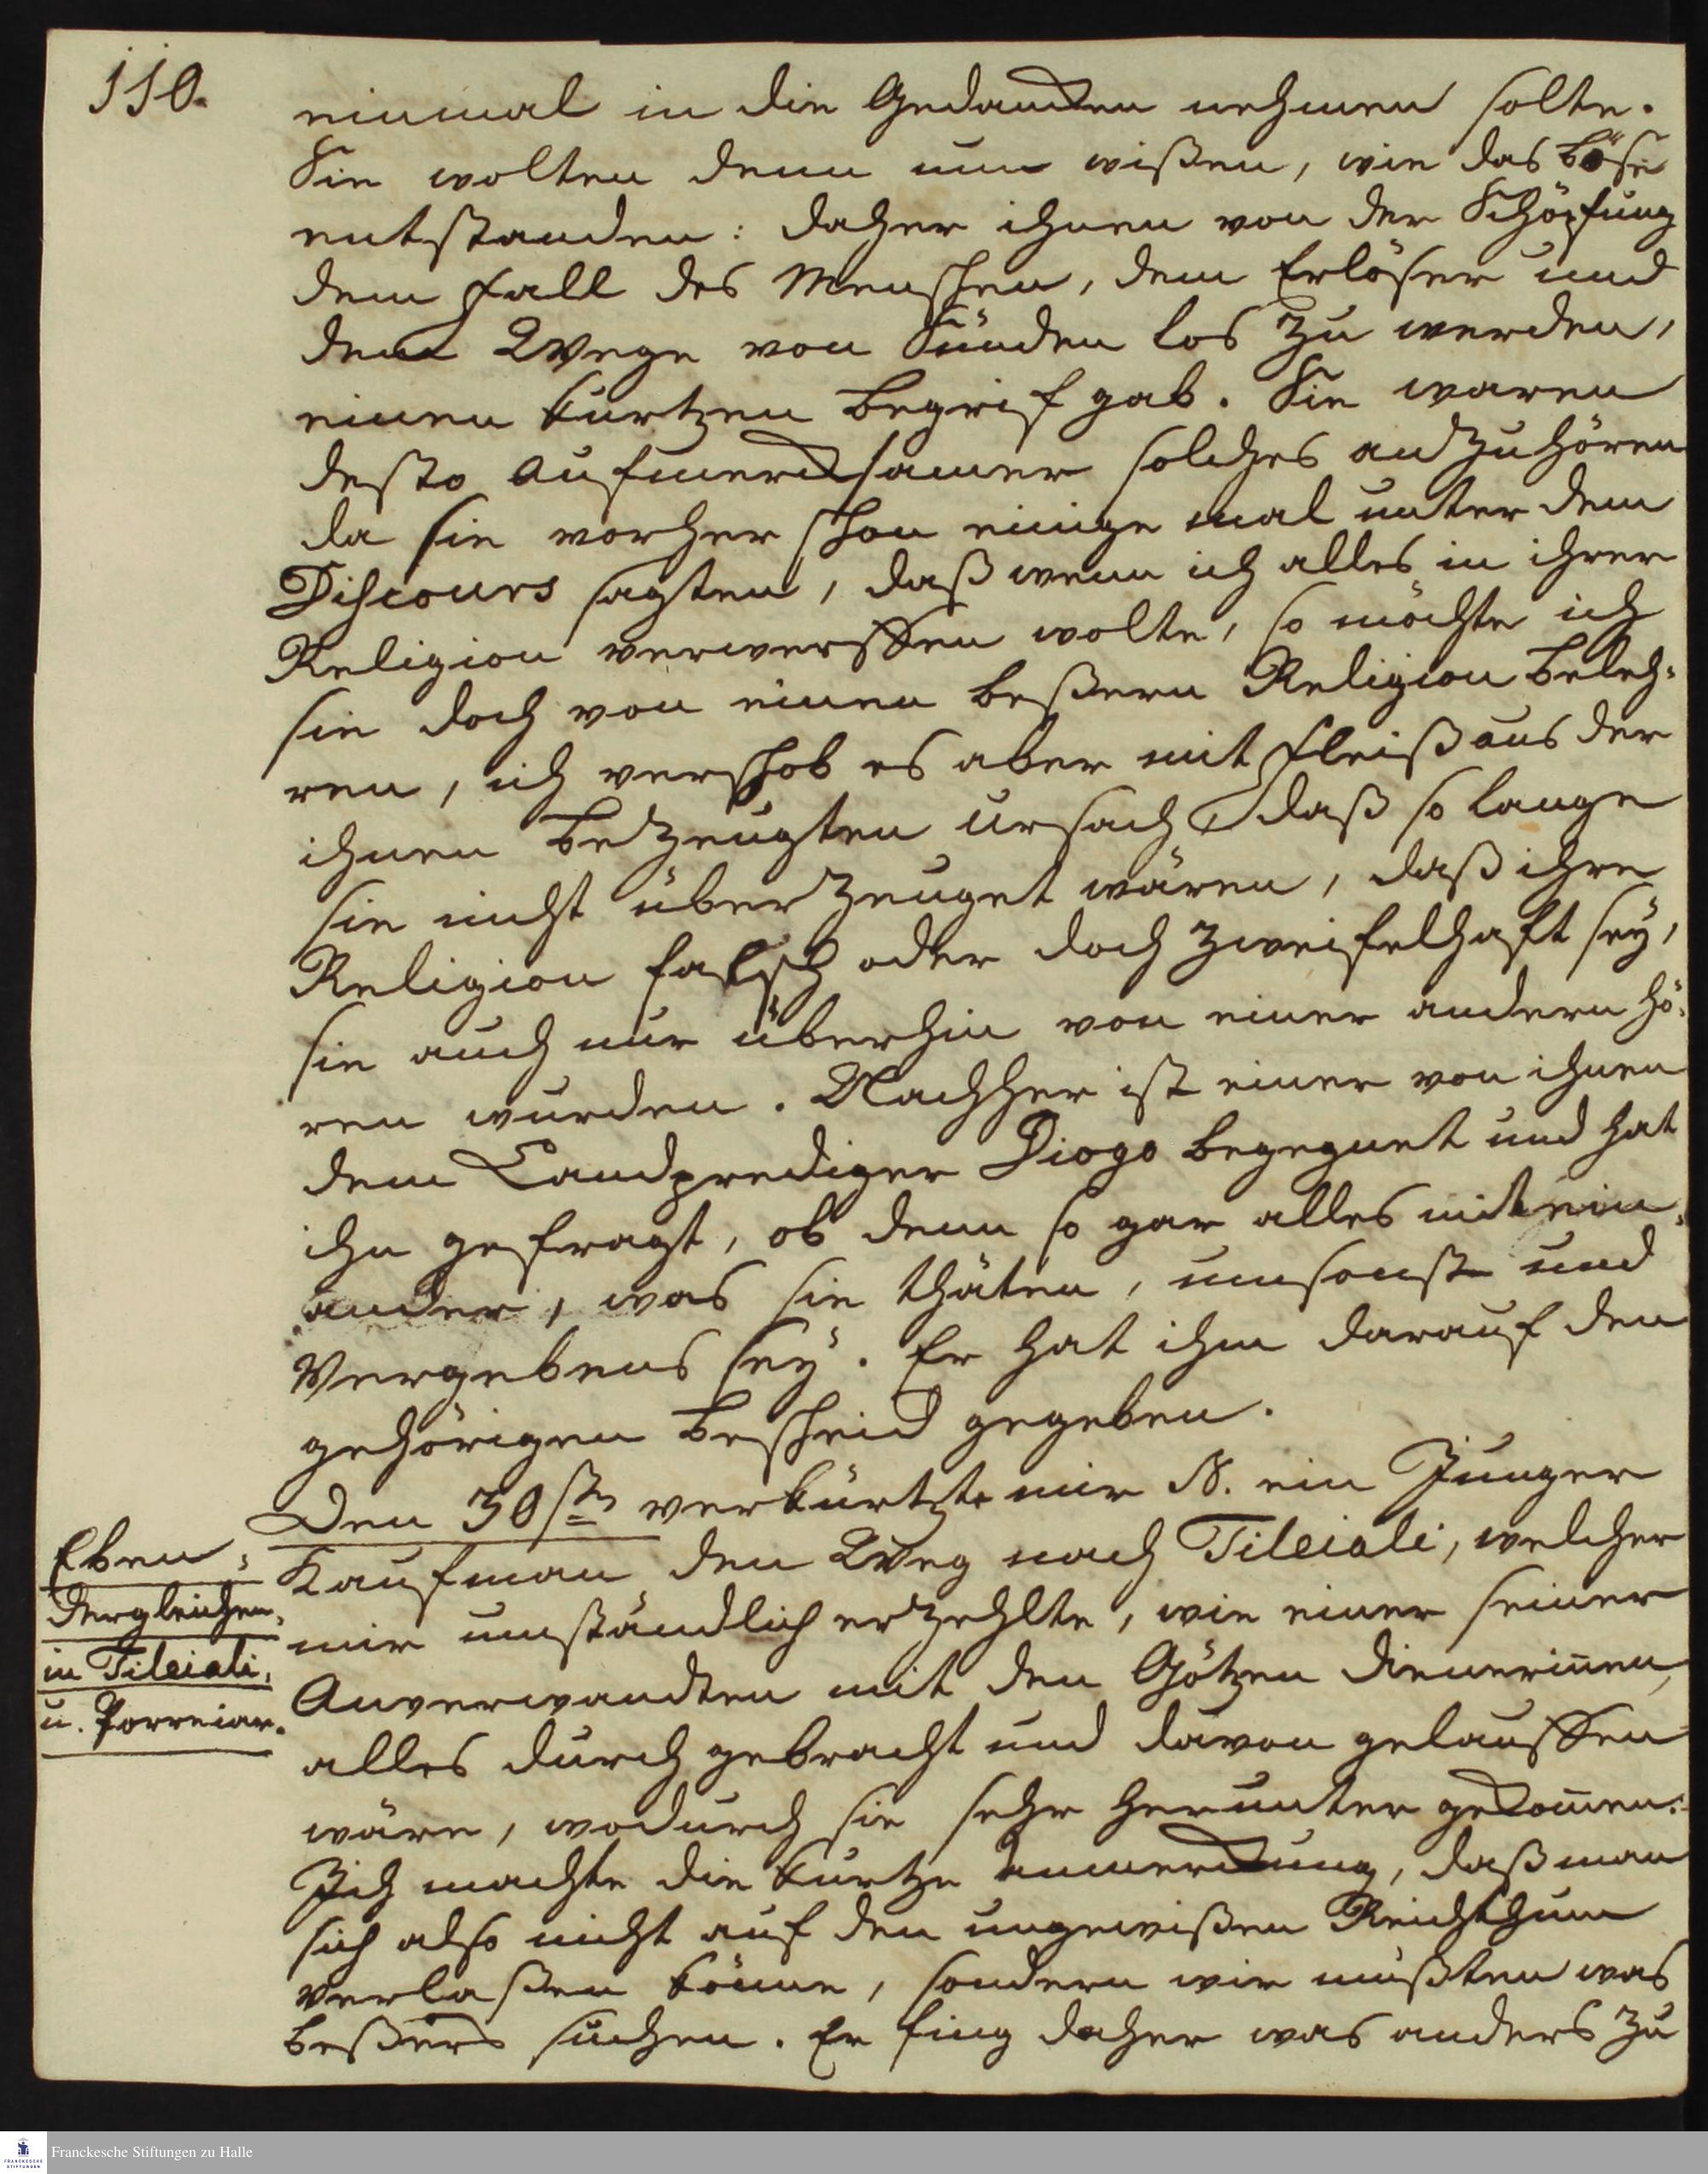 110.
einmal in die Gedancken nehmen solte.
Sie wolten denn nun wißen, wie das böse
entstanden: daher ihnen von der Schöpfung
dem Fall des Menschen, dem Erlöser und
dem Wege von Sünden los zu werden,
einen kurtzen Begrif gab. Sie waren
desto aufmercksamer solches anzuhören
da sie vorher schon einige mal unter dem
Discours sagten, daß wenn ich alles in ihrer
Religion verwerffen wolte, so möchte ich
sie doch von einen beßern Religion beleh-
ren, ich verschob es aber mit Fleiß aus der
ihnen bezeugten Ursach daß so lange
sie nicht überzeuget wären, daß ihre
Religion falsch oder doch zweifelhafft sey,
sie auch nur überhin von einer andern hö-
ren würden. Nachher ist einer von ihnen
dem Landprediger Diogo begegnet und hat
ihn gefragt, ob denn so gar alles mit ein-
ander, was sie thäten, umsonst und
vergebens sey. Er hat ihm darauf den
gehörigen Bescheid gegeben.
Den 30sten verkürtzte mir N. ein Junger
Kaufman den Weg nach Tileiali, welcher
mir umständlich erzehlte, wie einer seiner
Anverwandten mit den Götzen dienerinnen,
alles durch gebracht und davon gelauffen
wäre, wodurch sie sehr herunter gekommen.
Ich machte die kurtze Anmerckung, daß man
sich also nicht auf den ungewißen Reichthum
verlaßen könne, sondern wir müßten was
beßers suchen. Er fing daher was anders zu
Eben-
dergleichen
in Tileiali,
u. Porreiar.
Franckesche Stiftungen zu Halle
FRANCKESCHE
STIFTUNGEN